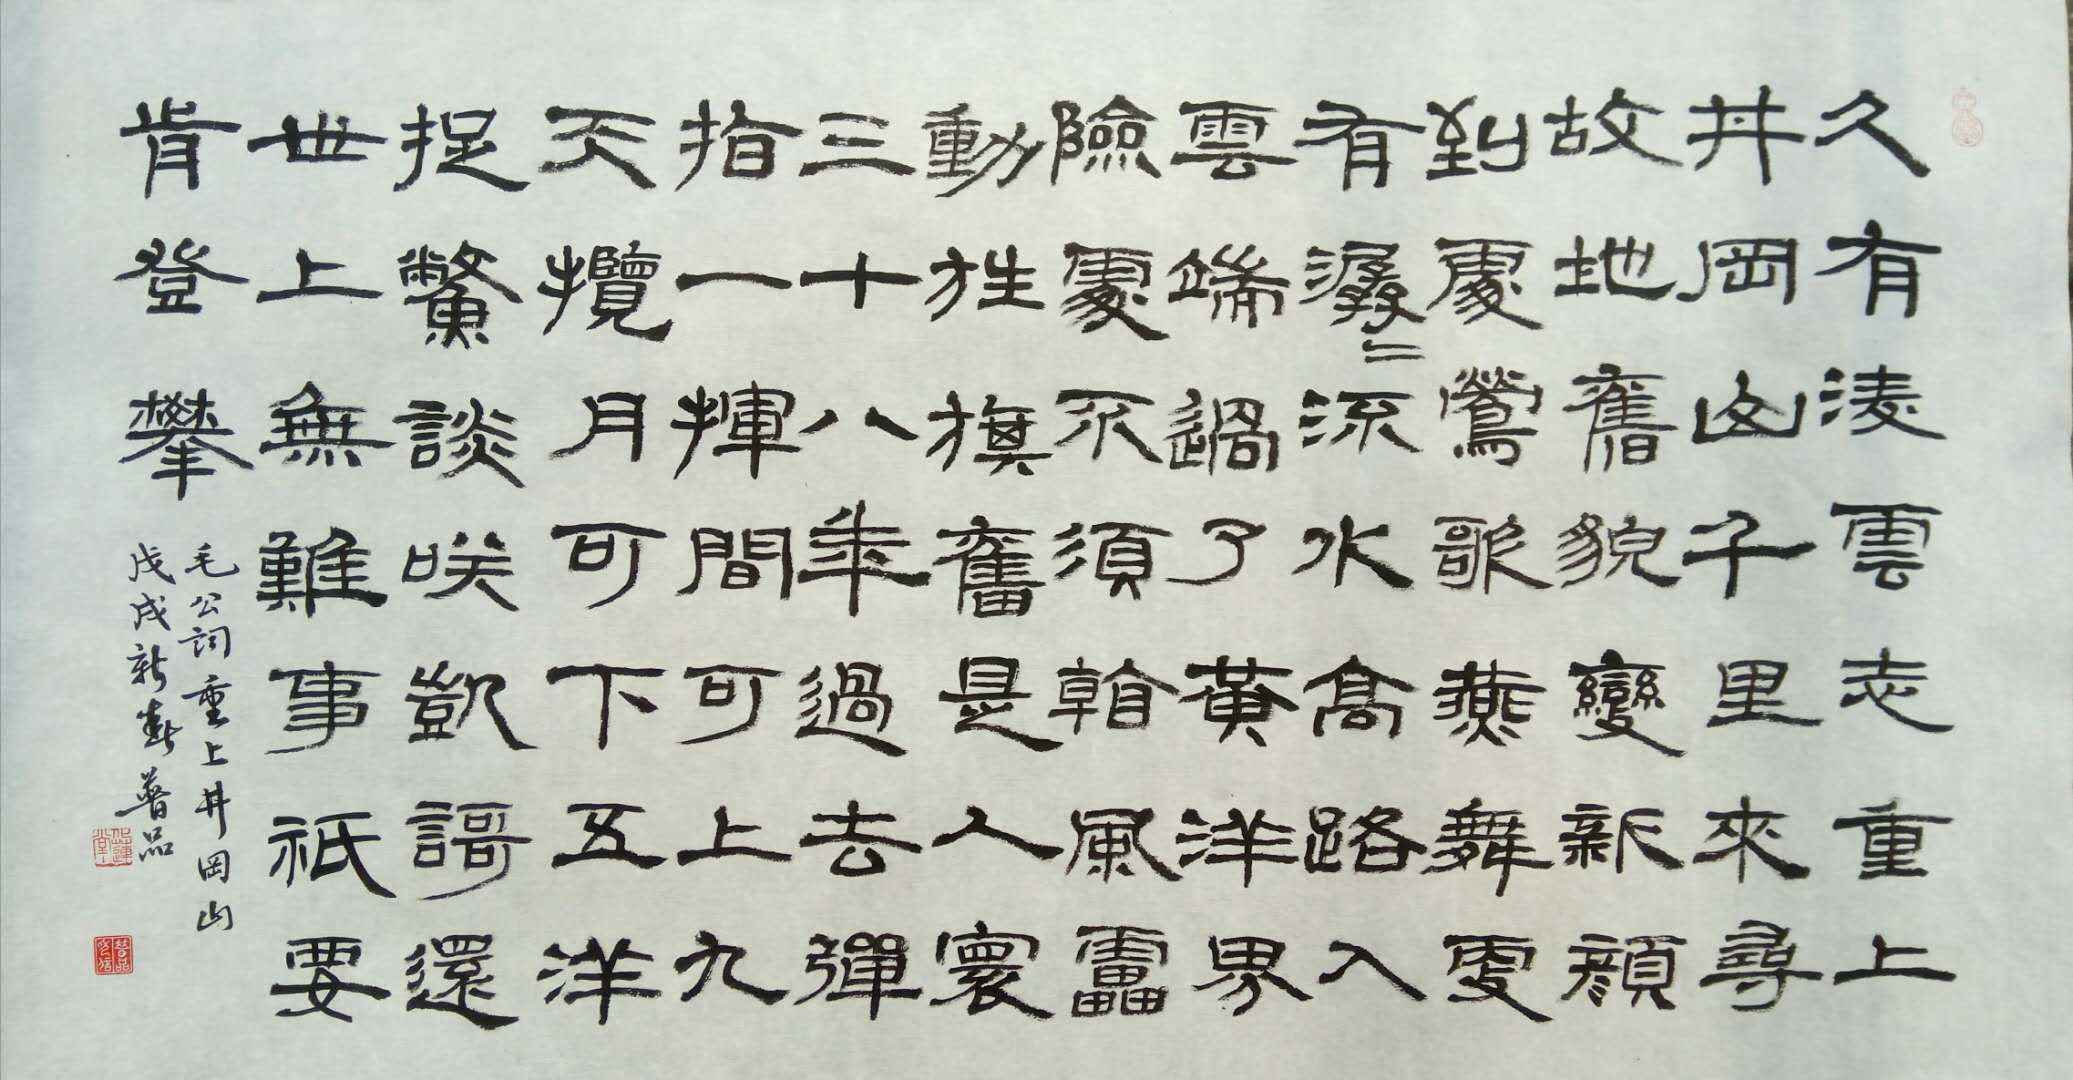 久有淩雲志重上
井岡山千里來尋
故地舊貌變新顏
到處鶯歌燕舞更
有潺〻流水高路入
雲端過了黃洋界
險處不須看風雷
動旌旗奮是人寰
三十八年過去彈
指一揮間可上九
天攬月可下五洋
捉鱉談咲凱謌還
世上無難事祇要
肯登攀
毛公詞重上井岡山
戊戌新春普品